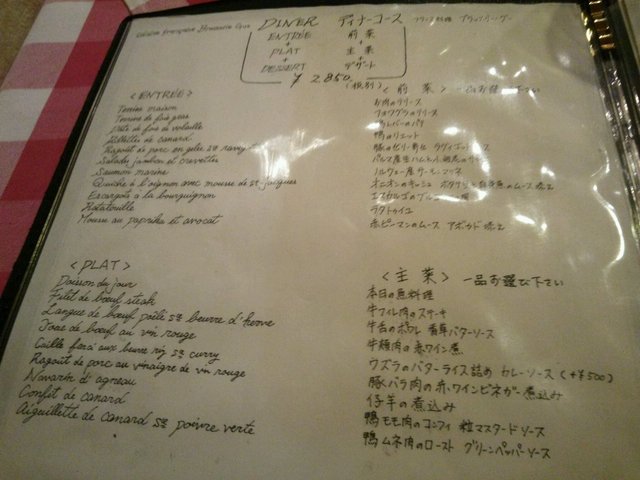 Cuisine française Brasserie
DINER ディナーコース フランス料理
ENTRÉE 前菜
+ +
PLAT 主菜
+ +
DESSERT デザート
¥2,850. (税別)
<ENTRÉE>
Terrine maison
Terrine de foie gras
Pâté de foie de volaille
Rillettes de canard
Ragoût de porc en gelée sce ravigote
Salade jambon et crevettes
Saumon mariné
Quiche à l'oignon avec mousse de St jacques
Escargots à la bourguignon
Ratatouille
Mousse au paprika et avocat
<前菜> 一品お選び下さい
お肉のテリーヌ
フォワグラのテリーヌ
鴨レバーのパテ
鴨のリエット
豚のゼリー寄せ ラヴィゴットソース
パルマ産生ハムと小海老のサラダ
ノルウェー産サーモンマリネ
オニオンのキッシュ ホタテと白身魚のムース添え
エスカルゴのブルゴーニュ風
ラタトゥイユ
赤ピーマンのムース アボカド添え
<PLAT>
Poisson du jour
Filet de bœuf steak
Langue de bœuf poêlé sce beurre d'herve
Joue de bœuf au vin rouge
Caille farci aux beurre riz sce curry
Ragoût de porc au vinaigre de vin rouge
Navarin d'agneau
Confit de canard
Aiguillette de canard sce poivre verte
<主菜> 一品お選び下さい
本日の魚料理
牛フィレ肉のステーキ
牛舌のポワレ 香草バターソース
牛頬肉の赤ワイン煮
ウズラのバターライス詰め カレーソース (+¥500)
豚バラ肉の赤ワインビネガー煮込み
仔羊の煮込み
鴨モモ肉のコンフィ 粒マスタードソース
鴨ムネ肉のロースト グリーンペッパーソース